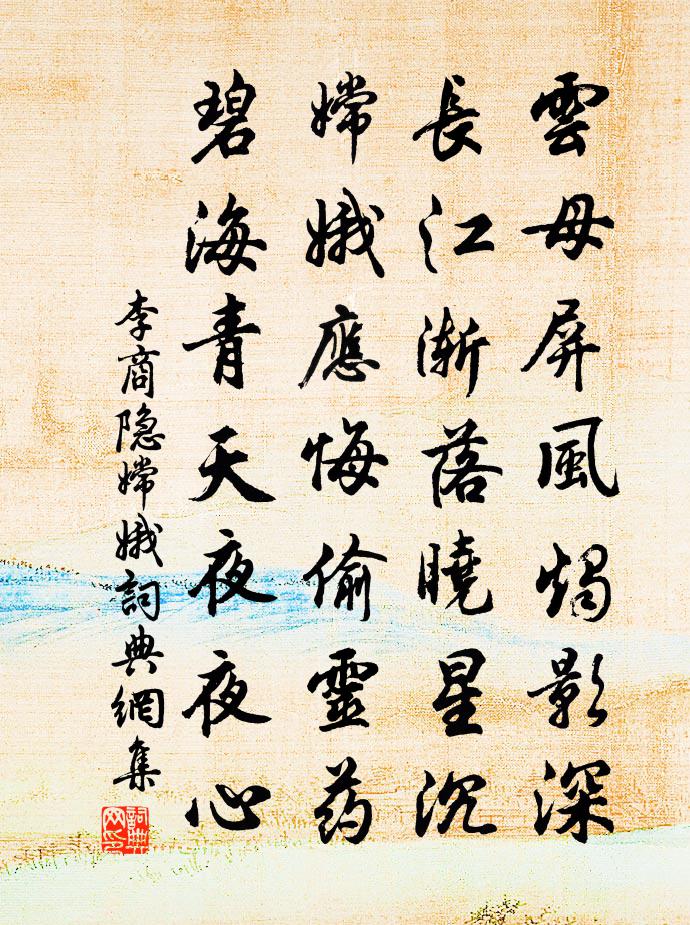 雲母屏風燭影深
長江漸落曉星沉
嫦娥應悔偷靈药
碧海青天夜夜心
李商隐嫦娥詞典網集
詞典网印